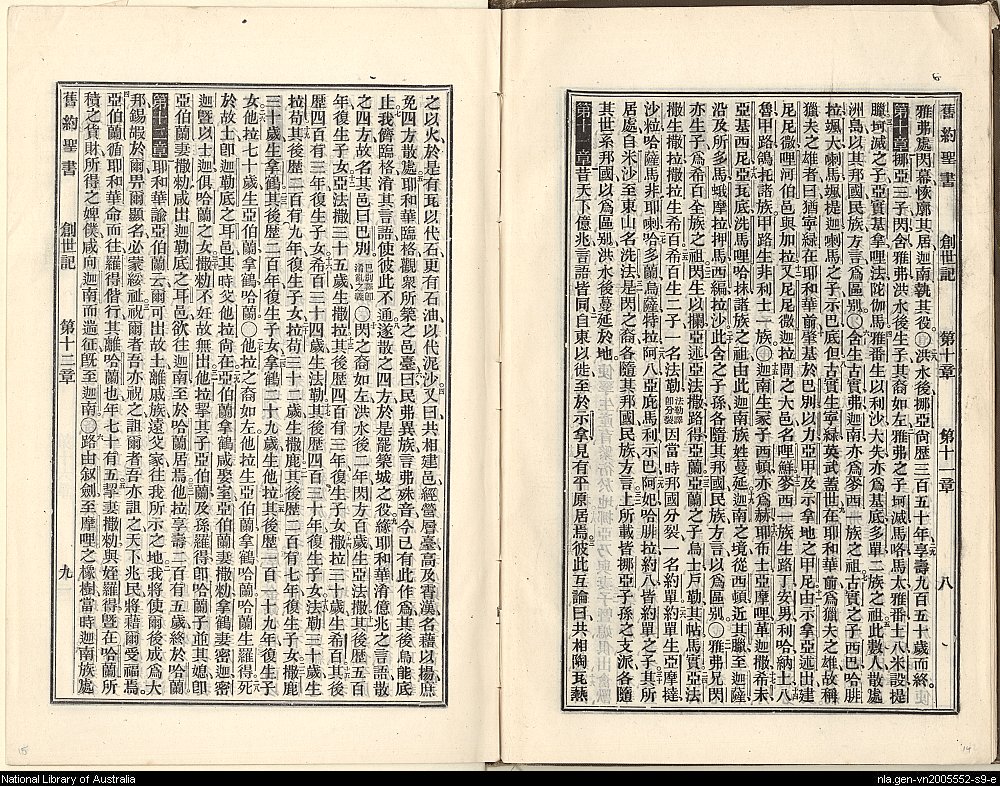 舊約聖書 創世記 第十章 第十一章 八
雅弗處閃幕恢廓其居迦南執其役〇洪水後挪亞尙歷三百五十年享壽九百五十歲而終
第十章挪亞三子閃含雅弗洪水後生子其裔如左雅弗之子坷滅馬咯馬太雅番土八米設提
臘坷滅之子亞實基拿哩法陀伽馬雅番生以利沙大失亦爲基底多單二族之祖此數人散處
洲島以其邦國民族方言爲區別〇含生古實弗迦南亦爲麥西一族之祖古實之子西巴哈腓
拉颯大喇馬颯提迦喇馬之子示巴底但古實生寧綠英武蓋世在耶和華前爲獵夫之雄故稱
獵夫之雄者曰猶寧綠在耶和華前肇基於巴別以力亞甲及示拿地之甲尼由示拿亞述出建
尼尼微哩河伯邑與加拉又尼尼微迦拉間之大邑名哩鮮麥西一族生路丁安男利哈納土八
魯甲路鴿托諸族甲路生非利士一族迦南生家子西頓亦爲赫耶布士亞摩哩革迦撒希未
亞基西尼亞瓦底洗馬哩哈抹諸族之祖由此迦南族姓蔓延迦南之境從西頓近其臘至迦薩
沿及所多馬蛾摩拉押馬西編拉沙此含之子孫各隨其邦國民族方言以爲區別〇雅弗兄閃
亦生子爲希百全族之祖閃生以攔亞述亞法撒路得亞蘭亞蘭之子烏士戶勒其帖馬實亞法
撒生撒拉撒拉生希百希百生二子一名法勒法勒譯卽分裂因當時邦國分裂一名約單約單生亞摩撻
沙粒哈薩馬非耶喇哈多蘭烏薩特拉阿八亞庇馬利示巴阿妲哈腓拉約八皆約單之子其所
居處自米沙至東山名洗法是閃之裔各隨其邦國民族方言上所載皆挪亞子孫之支派各隨
其世系邦國以爲區別洪水後蔓延於地
第十一章昔天下億兆言語皆同自東以徙至於示拿見有平原居焉彼此互論曰共相陶瓦熱
之以火於是有瓦以代石更有石油以代泥沙又曰共相建邑經營層臺高及膏漢名藉以揚庶
免四方散處耶和華臨格觀衆所築之邑臺曰民弗異族言弗殊音今已有此作爲其後烏能底
止我儕臨格淆其言語使彼此不通遂散之四方於是罷築城之役緣耶和華淆億兆之言語散
之四方故名其邑曰巴別巴別譯卽淆亂之義〇閃之裔如左洪水後二年閃方百歲生亞法撒其後歷五百
年復生子女亞法撒三十五歲生撒拉其後歷四百有三年復生子女撒拉三十歲生希百其後
歷四百有三年復生子女希百三十四歲生法勒其後歷四百三十年復生子女法勒三十歲生
拉苟其後歷二百有九年復生子女拉苟三十二歲生撒鹿其後歷二百有七年復生子女撒鹿
三十歲生拿鶴其後歷二百年復生子女拿鶴二十九歲生他拉其後歷一百一十九年復生子
女他拉七十歲生亞伯蘭拿鶴哈蘭〇他拉之裔如左他拉生亞伯蘭拿鶴哈蘭哈蘭生羅得死
於故土卽迦勒底之耳邑其時父他拉尙在亞伯蘭拿鶴咸娶室亞伯蘭妻撒勑拿鶴妻密迦密
迦曁以士迦俱哈蘭之女撒勑不姙故無出他拉挈其子亞伯蘭及孫羅得卽哈蘭子並其媳卽
亞伯蘭妻撒勑咸出迦勒底之耳邑欲往迦南至於哈蘭居焉他拉享壽二百有五歲終於哈蘭
第十二章耶和華諭亞伯蘭云爾可出故土離戚族遠父家往我所示之地我將使爾後成爲大
邦錫嘏於爾畀爾顯名必蒙綏祉祝爾者吾亦祝之詛爾者吾亦詛之天下兆民將藉爾受福焉
亞伯蘭循耶和華命而往羅得偕行其離哈蘭也年七十有五挈妻撒勑與姪羅得曁在哈蘭所
積之貨財所得之婢僕咸向迦南而遄征旣至迦南〇路由敘劍至摩哩之橡樹當時迦南族處
舊約聖書 創世記 第十二章 九
15
14
National Library of Australia
nla.gen-vn2005552-s9-e